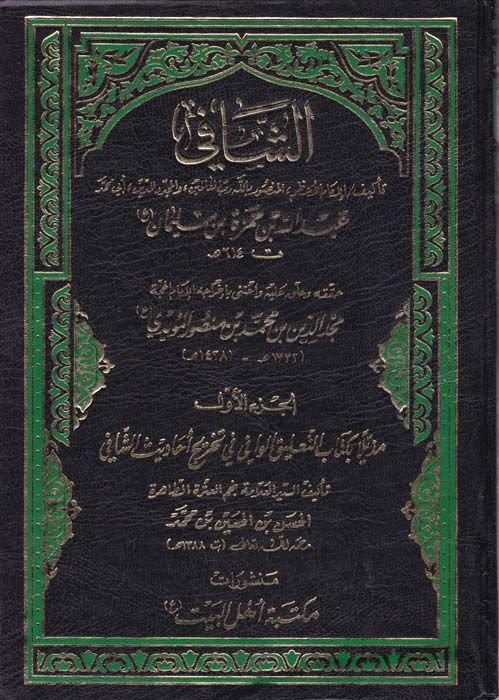 الشافي
تأليف/ الإمام الأعظم، المنصور بالله رب العالمين، والمجدد للدين، أبي محمد
عبد الله بن حمزة بن سليمان (ع)
ت ٦١٤ هـ
حققه وعلق عليه واعتنى بإخراجه الإمام الحجة
مجد الدين بن محمد بن منصور المؤيدي (ع)
(١٣٣٢هـ - ١٤٢٨هـ)
الجزء الأول
مذيلا بكتاب التعليق الوافي في تخريج أحاديث الشافي
تأليف السيد العلامة نجم العترة الطاهرة
الحسن بن الحسين بن محمد
رحمه الله تعالى (ت ١٣٨٨هـ)
منشورات
مكتبة أهل البيت (ع)